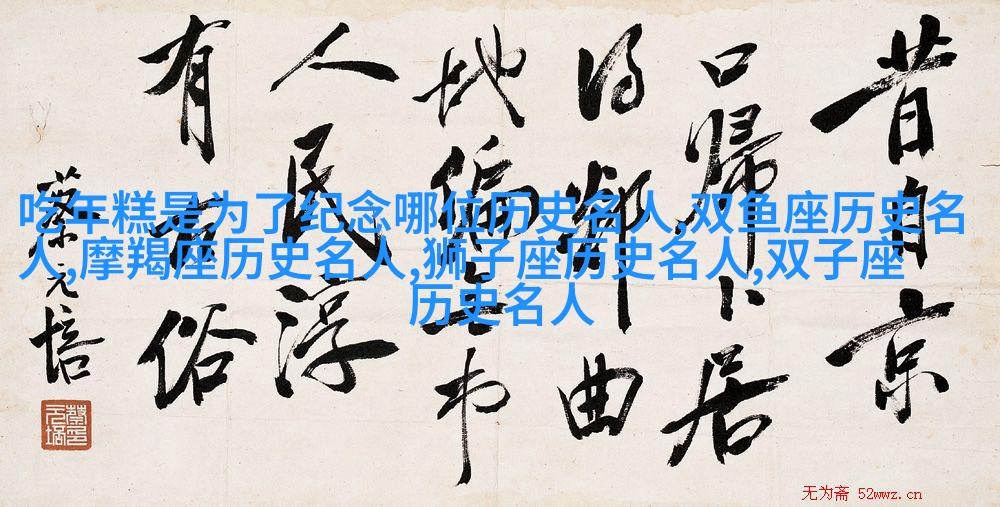 吃年糕是为了纪念哪位历史名人,双鱼座历史名
人,摩羯座历史名人,狮子座历史名人,双子座
历史名人
昔自京
口歸卜居
得鄰曲
地偏無市
人民淳
有古俗
蔡元培
无为斋 52wwz.cn